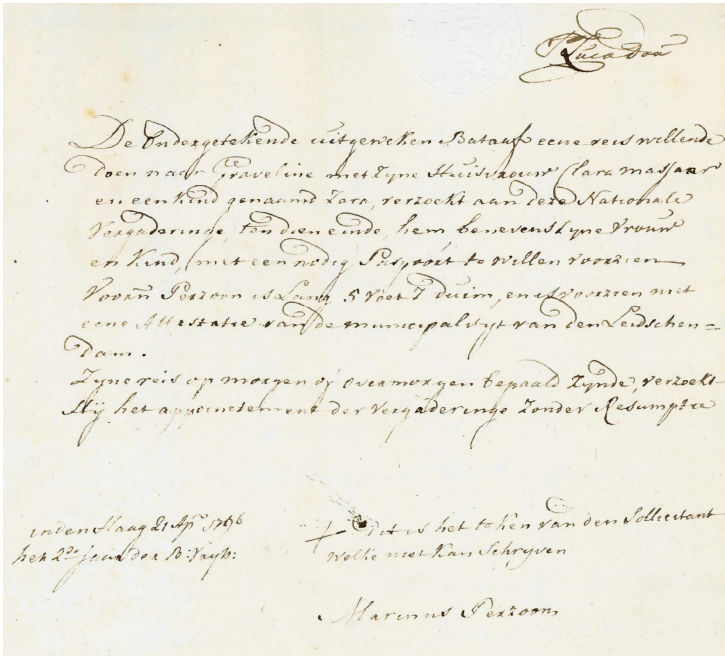 De Ondergetekende uitgeweken Bataaf eene reis willende
doen naar Graveline met zyne Huisvrouw Clara masjaar
en een Kind genaamd Zara, verzoekt aan deze Nationale
Vergaderinge, ten dien einde, hem benevens zyne Vrouw
en Kind, met een nodig Paspoort te willen voorzien
Voorn Perzoon is Lang 5 voet 7 duim, en is voorzien met
eene Attestatie van de municipalityt van den Leidschen=
dam.
Zyne reis op morgen of overmorgen bepaald zynde, verzoekt
Hy het appointement der vergaderinge zonder Resumptie
in den Haag 21 Apr. 1796
het 2de jaar der B: Vryh:
+ dit is het teken van den Sollicitant
welke niet kan Schryven
Marinus Perzoon